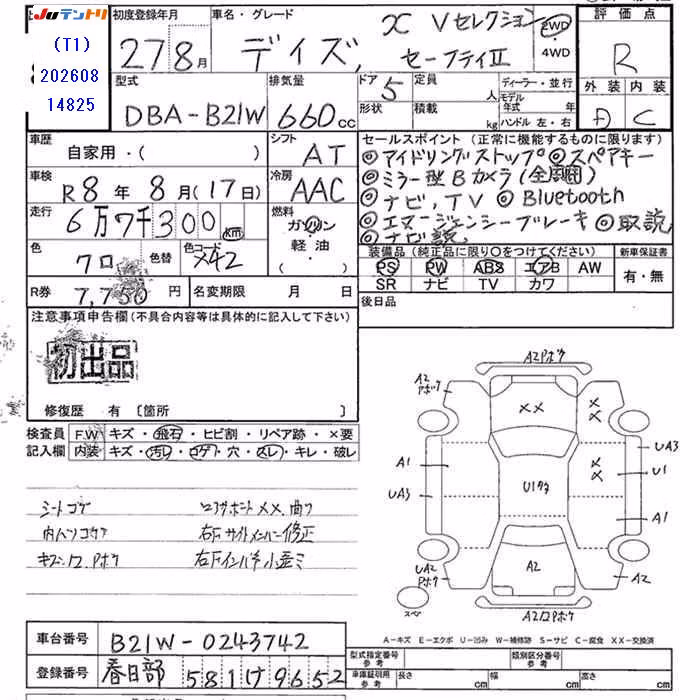 JUテントリ
(T1)
202608
14825
初度登録年月
27年8月
車名・グレード
デイズ, X Vセレクション
セーフティII
2WD
4WD
評価点
R
外装 内装
D C
型式
DBA-B21W
排気量
660cc
ドア
5
形状
定員
人
積載
kg
ディーラー・並行
モデル
年式 年
ハンドル 左・右
車歴
自家用・( )
シフト
AT
車検
R8年8月(17日)
冷房
AAC
走行
6万7千300km
燃料
ガソリン
軽油
・( )
色
クロ
色替
色コード
X42
R券
7,750円
名変期限 月 日
セールスポイント(正常に機能するものに限ります)
◎アイドリングストップ ◎スペアキー
◎ミラー型Bカメラ(全周囲)
◎ナビ,TV ◎Bluetooth
◎エマージェンシーブレーキ ◎取説
◎ナビ説
装備品(純正品に限り○をつけてください)
PS PW ABS エアB AW
SR ナビ TV カワ
新車保証書
有・無
後日品
注意事項申告欄(不具合内容等は具体的に記入して下さい)
初出品
修復歴 有 〔箇所 〕
検査員
記入欄
F.W キズ・飛石・ヒビ割・リペア跡・×要
内装 キズ・汚レ・コゲ・穴・スレ・キレ・破レ
シートコゲ
内ハリコゲ
コアサポートXX,曲り
右Fサイドメンバー修正
右Fインパネ小歪ミ
A2Pボケ
A2
Pボケ
XX
X
X
UA3
A1
U1
X
X
U1
UA3
A1
UA2
Pボケ
A2
A2
スペア
A-キズ E-エクボ U-凹み W-補修跡 S-サビ C-腐食 XX-交換済
車台番号
B21W-0243742
登録番号
春日部 581け9652
型式指定番号
参考
類別区分番号
参考
車庫証明用
参考
長さ cm
幅 cm
高さ cm